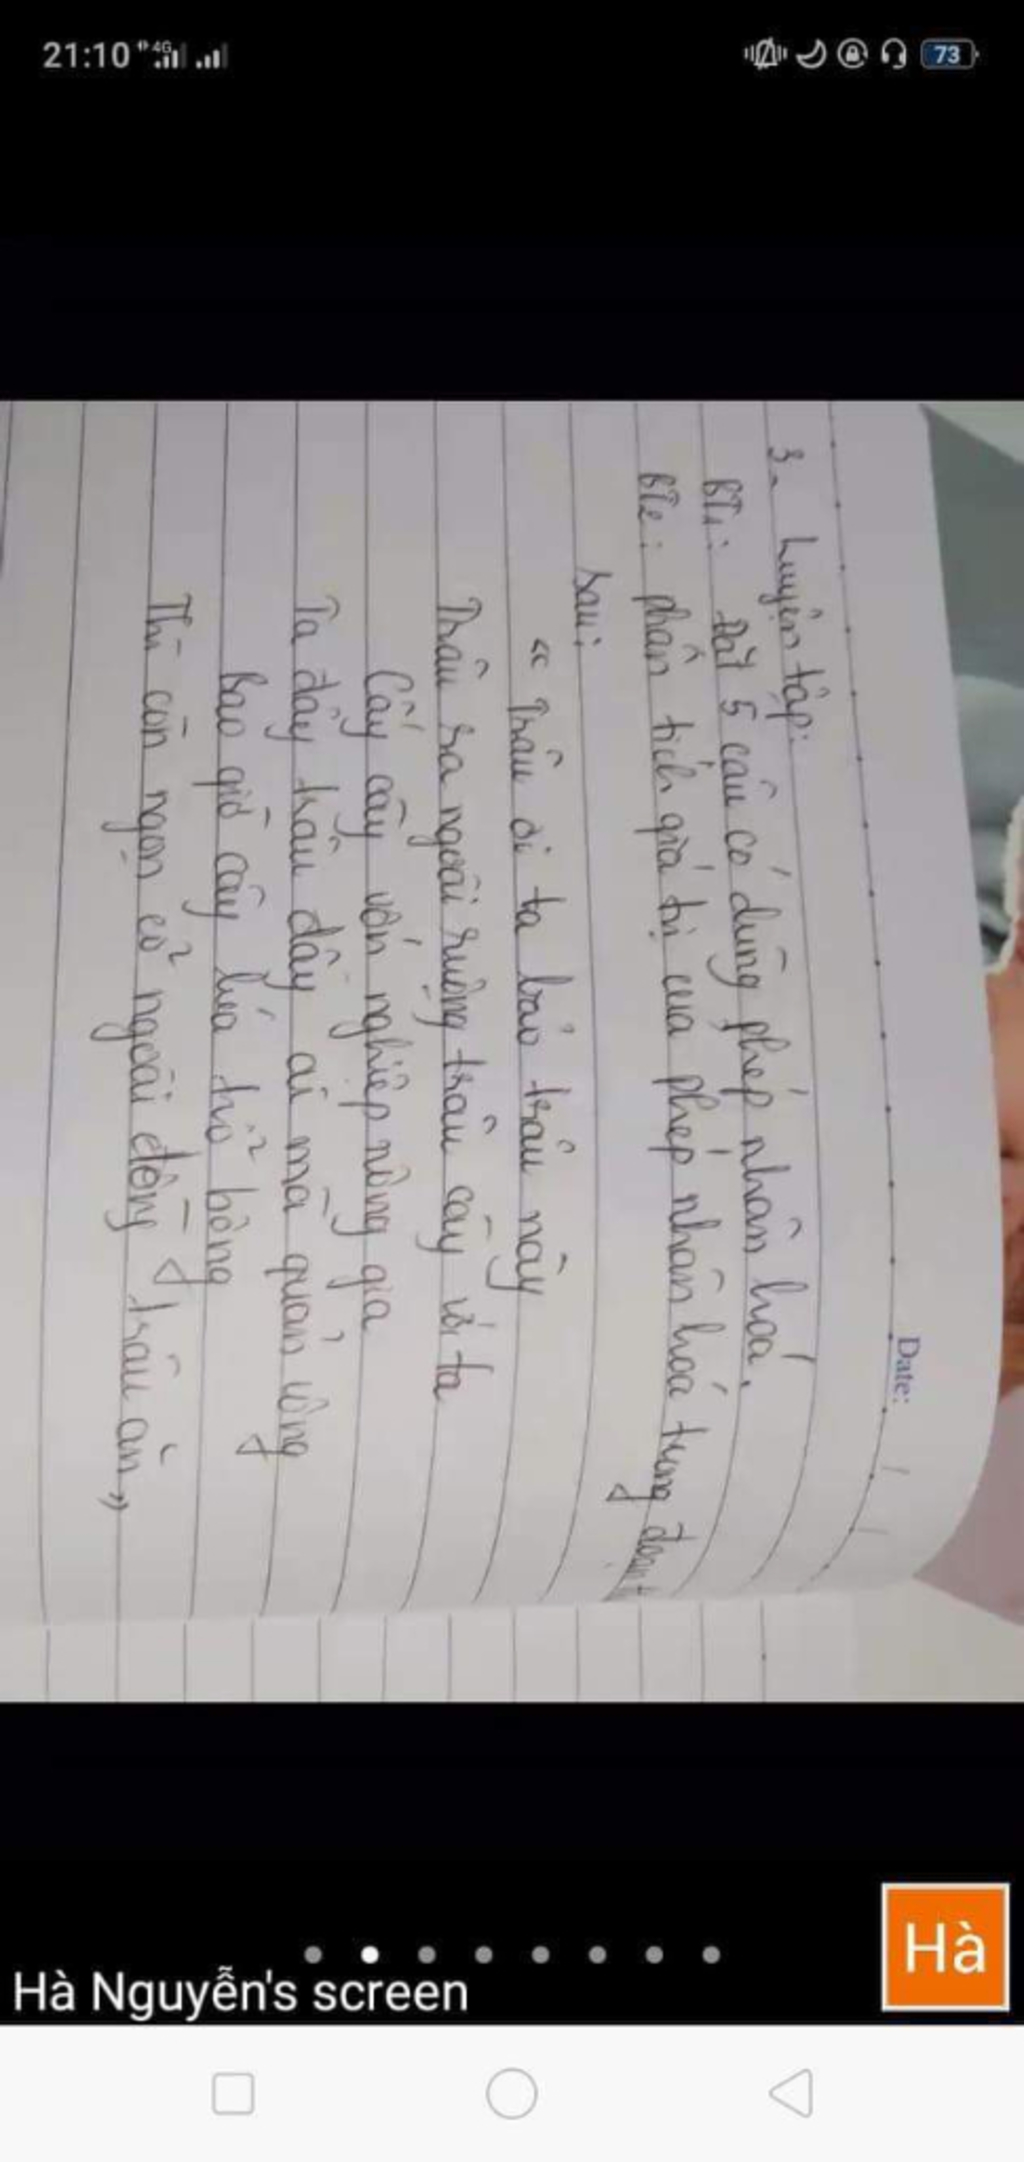 21:10
4G
73
Date:
3. Luyện tập:
BT1: Đặt 5 câu có dùng phép nhân hoá.
BT2: phân tích giá trị của phép nhân hoá trong đoạn
sau:
"Trâu ơi ta bảo trâu này
Trâu ra ngoài ruộng trâu cày với ta
Cấy cày vốn nghiệp nông gia
Ta đây trâu đấy ai mà quản công
Bao giờ cây lúa trổ bông
Thì còn ngọn cỏ ngoài đồng trâu ăn"
Hà
Hà Nguyễn's screen